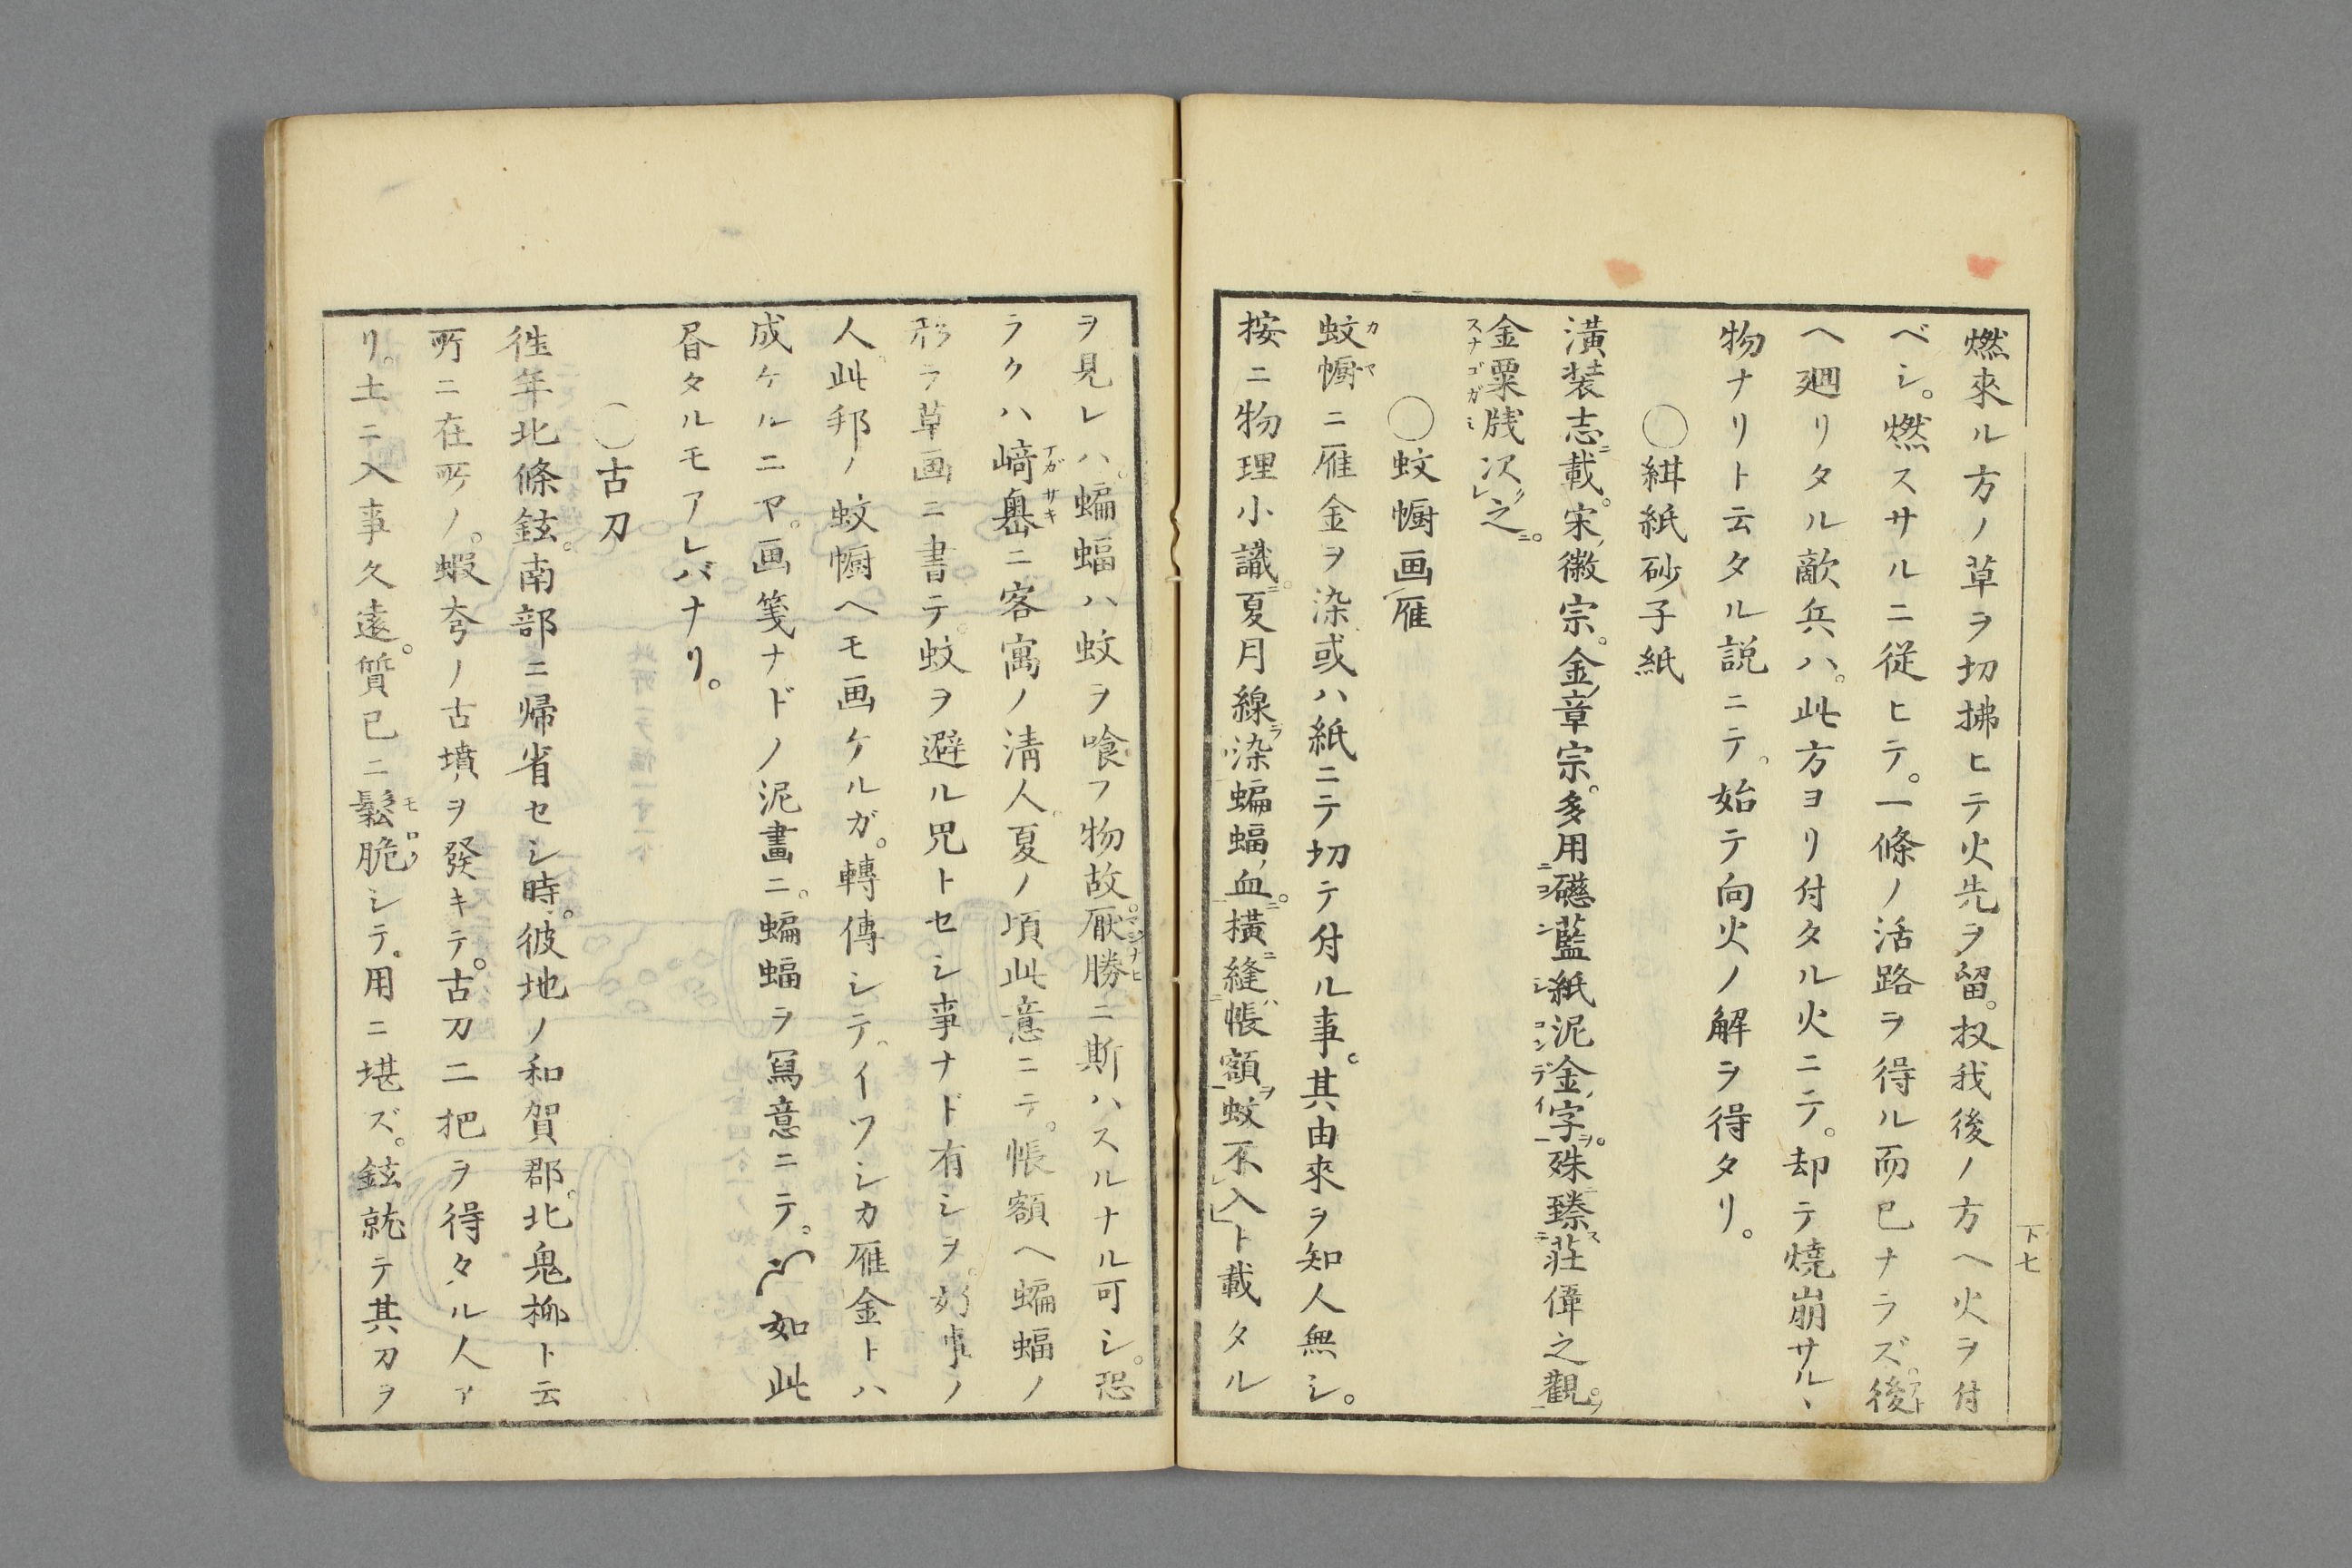 燃來ル方ノ草ヲ切拂ヒテ火先ヲ留。扠我後ノ方ヘ火ヲ付
ベシ。燃スサルニ従ヒテ。一條ノ活路ヲ得ル而已ナラズ。後
ヘ廻リタル敵兵ハ。此方ヨリ付タル火ニテ。却テ燒崩サルヽ
物ナリト云タル説ニテ。始テ向火ノ解ヲ得タリ。
〇紺紙砂子紙
潢装志載。宋徽宗。金章宗。多用磁藍紙泥金字。殊臻荘偉之觀。
金粟牋次之。
〇蚊幮画雁
蚊幮ニ雁金ヲ染或ハ紙ニテ切テ付ル事。其由來ヲ知人無シ。
按ニ物理小識。夏月線染蝙蝠血。横縫帳額蚊不入ト載タル
下七
ヲ見レハ。蝙蝠ハ蚊ヲ喰フ物故。厭勝ニ斯ハスルナル可シ。恐
ラクハ﨑嶴ニ客寓ノ淸人。夏ノ頃此意ニテ。帳額ヘ蝙蝠ノ
形ヲ草画ニ書テ。蚊ヲ避ル咒トセシ事ナド有シヲ。好事ノ
人此邦ノ蚊幮ヘモ画ケルガ。轉傳シテ。イツシカ雁金トハ
成ケルニヤ。画箋ナドノ泥畫ニ。蝙蝠ヲ冩意ニテ。如此
眷タルモアレバナリ。
〇古刀
徃年北條鉉。南部ニ帰省セシ時。彼地ノ和賀郡。北鬼柳ト云
所ニ在所ノ。蝦夷ノ古墳ヲ發キテ。古刀二把ヲ得タル人ア
リ。土ニ入事久遠。質已ニ鬆脆シテ。用ニ堪ズ。鉉就テ其刀ヲ